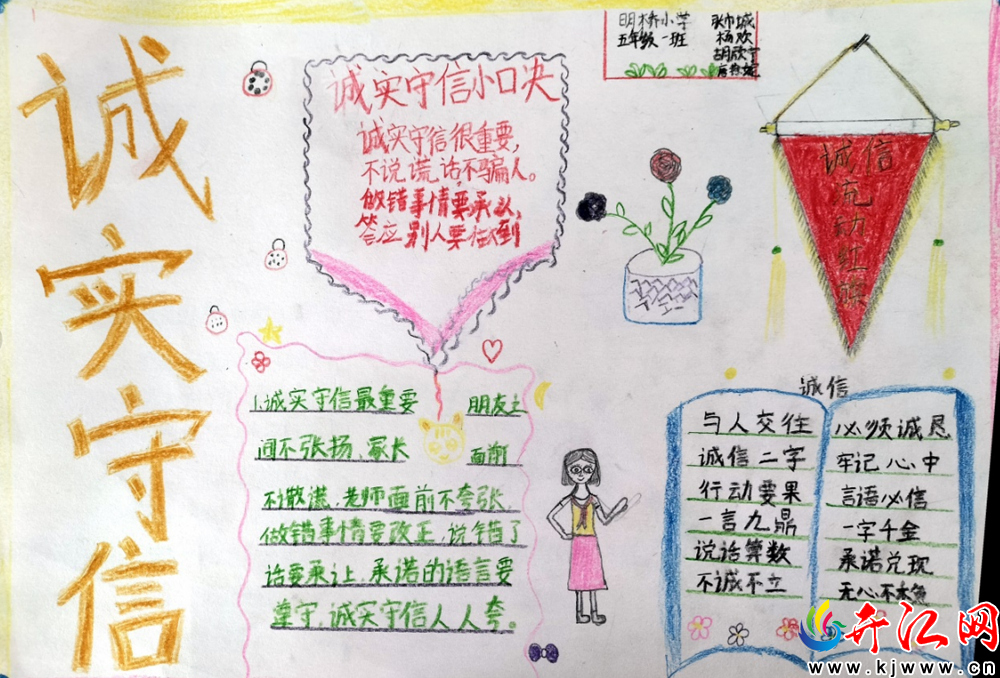 诚实守信
明桥小学
五年级一班
杨欢
诚实守信小口决
诚实守信很重要,
不说谎话不骗人。
做错事情要承认,
答应别人要做到
诚信
流动红旗
1、诚实守信最重要 朋友之
间不张扬、家长 面前
不撒谎,老师面前不夸张,
做错事情要改正,说错了
话要承让,承诺的语言要
遵守,诚实守信人人夸。
诚信
与人交往
诚信二字
行动要果
一言九鼎
说话算数
不诚不立
必须诚恳
牢记心中
言语必信
一字千金
承诺兑现
开江网
www.kjwww.cn